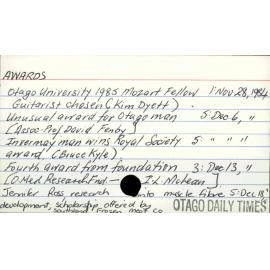 AWARDS
Otago University 1985 Mozart Fellow 1 Nov 28, 1984
Guitarist chosen (Kim Dyett) .
Unusual award for Otago man 5: Dec 6, "
[Assoc-Prof David Fenby]
Invermay man wins Royal Society 5: " " "
award, (Bruce Kyle)
Fourth award from foundation 3: Dec 13, "
[O Med Research Fnd - I. L. McLean]
Jennifer Ross, research into muscle fibre 5: Dec 18
development, scholarship offered by
Southland Frozen meat co
OTAGO DAILY TIMES